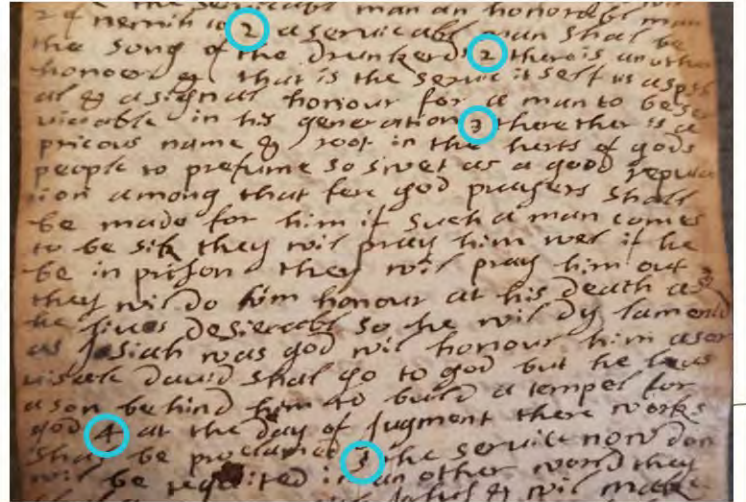 the servicabl man an honorabl man
2 a servicabl man shal be
the song of the drunkerd 2 there is an other
honour & that is the servic it self is a spesi
al & a signal honour for a man to be ser
viciable in his generation 3 there ther is a
pricous name & root in the herts of gods
people no prefume so swet as a good reputa
tion among that fere god prayers shall
be made for him if such a man comes
to be sik they wil pray him wel if he
be in prison they wil pray him out
they wil do him honour at his death as
he lives desierabl so he wil dy lamend
as Josiah was god wil honour him
david shal go to god but he levs
a son behind him to build a tempel for
god 4 at the day of Jugment there works
shal be proclamed 3 the service now don
wil be requited in an other world they